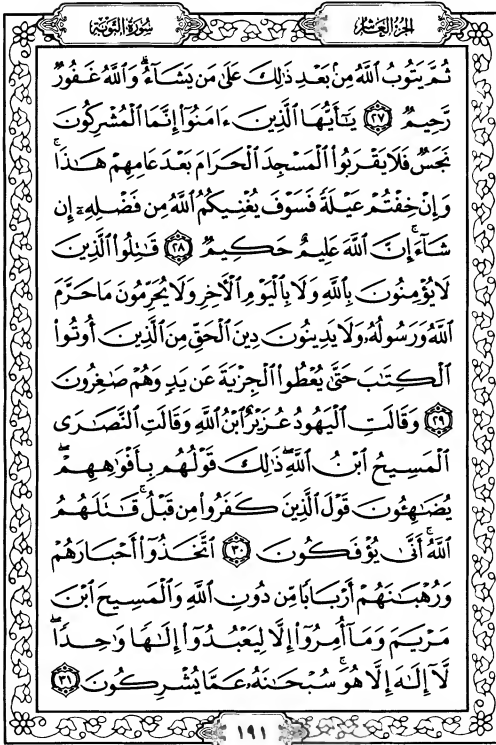 سُورَةُ التَّوْبَةِ
الجُزْءُ العَاشِرُ
ثُمَّ يَتُوبُ ٱللَّهُ مِنۢ بَعْدِ ذَٰلِكَ عَلَىٰ مَن يَشَآءُ ۗ وَٱللَّهُ غَفُورٌ
رَّحِيمٌ ﴿٢٧﴾ يَـٰٓأَيُّهَا ٱلَّذِينَ ءَامَنُوٓا۟ إِنَّمَا ٱلْمُشْرِكُونَ
نَجَسٌ فَلَا يَقْرَبُوا۟ ٱلْمَسْجِدَ ٱلْحَرَامَ بَعْدَ عَامِهِمْ هَـٰذَا ۚ
وَإِنْ خِفْتُمْ عَيْلَةً فَسَوْفَ يُغْنِيكُمُ ٱللَّهُ مِن فَضْلِهِۦٓ إِن
شَآءَ ۚ إِنَّ ٱللَّهَ عَلِيمٌ حَكِيمٌ ﴿٢٨﴾ قَـٰتِلُوا۟ ٱلَّذِينَ
لَا يُؤْمِنُونَ بِٱللَّهِ وَلَا بِٱلْيَوْمِ ٱلْـَٔاخِرِ وَلَا يُحَرِّمُونَ مَا حَرَّمَ
ٱللَّهُ وَرَسُولُهُۥ وَلَا يَدِينُونَ دِينَ ٱلْحَقِّ مِنَ ٱلَّذِينَ أُوتُوا۟
ٱلْكِتَـٰبَ حَتَّىٰ يُعْطُوا۟ ٱلْجِزْيَةَ عَن يَدٍ وَهُمْ صَـٰغِرُونَ
﴿٢٩﴾ وَقَالَتِ ٱلْيَهُودُ عُزَيْرٌ ٱبْنُ ٱللَّهِ وَقَالَتِ ٱلنَّصَـٰرَى
ٱلْمَسِيحُ ٱبْنُ ٱللَّهِ ۖ ذَٰلِكَ قَوْلُهُم بِأَفْوَٰهِهِمْ ۖ
يُضَـٰهِـُٔونَ قَوْلَ ٱلَّذِينَ كَفَرُوا۟ مِن قَبْلُ ۚ قَـٰتَلَهُمُ
ٱللَّهُ ۚ أَنَّىٰ يُؤْفَكُونَ ﴿٣٠﴾ ٱتَّخَذُوٓا۟ أَحْبَارَهُمْ
وَرُهْبَـٰنَهُمْ أَرْبَابًا مِّن دُونِ ٱللَّهِ وَٱلْمَسِيحَ ٱبْنَ
مَرْيَمَ وَمَآ أُمِرُوٓا۟ إِلَّا لِيَعْبُدُوٓا۟ إِلَـٰهًا وَٰحِدًا ۖ
لَّآ إِلَـٰهَ إِلَّا هُوَ ۚ سُبْحَـٰنَهُۥ عَمَّا يُشْرِكُونَ ﴿٣١﴾
١٩١